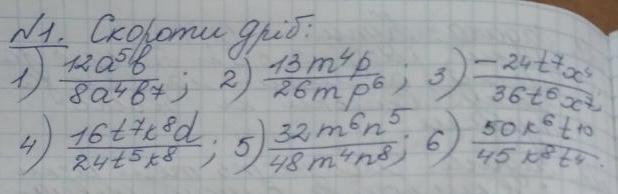 №1. Скороти дріб:
1) 12a⁵b/8a⁴b⁷; 2) 13m⁴p/26mp⁶; 3) -24t⁷x⁴/36t⁶x⁷;
4) 16t⁷k⁸d/24t⁵k⁸; 5) 32m⁶n⁵/48m⁴n⁸; 6) 50k⁶t¹⁰/45k⁸t⁴.